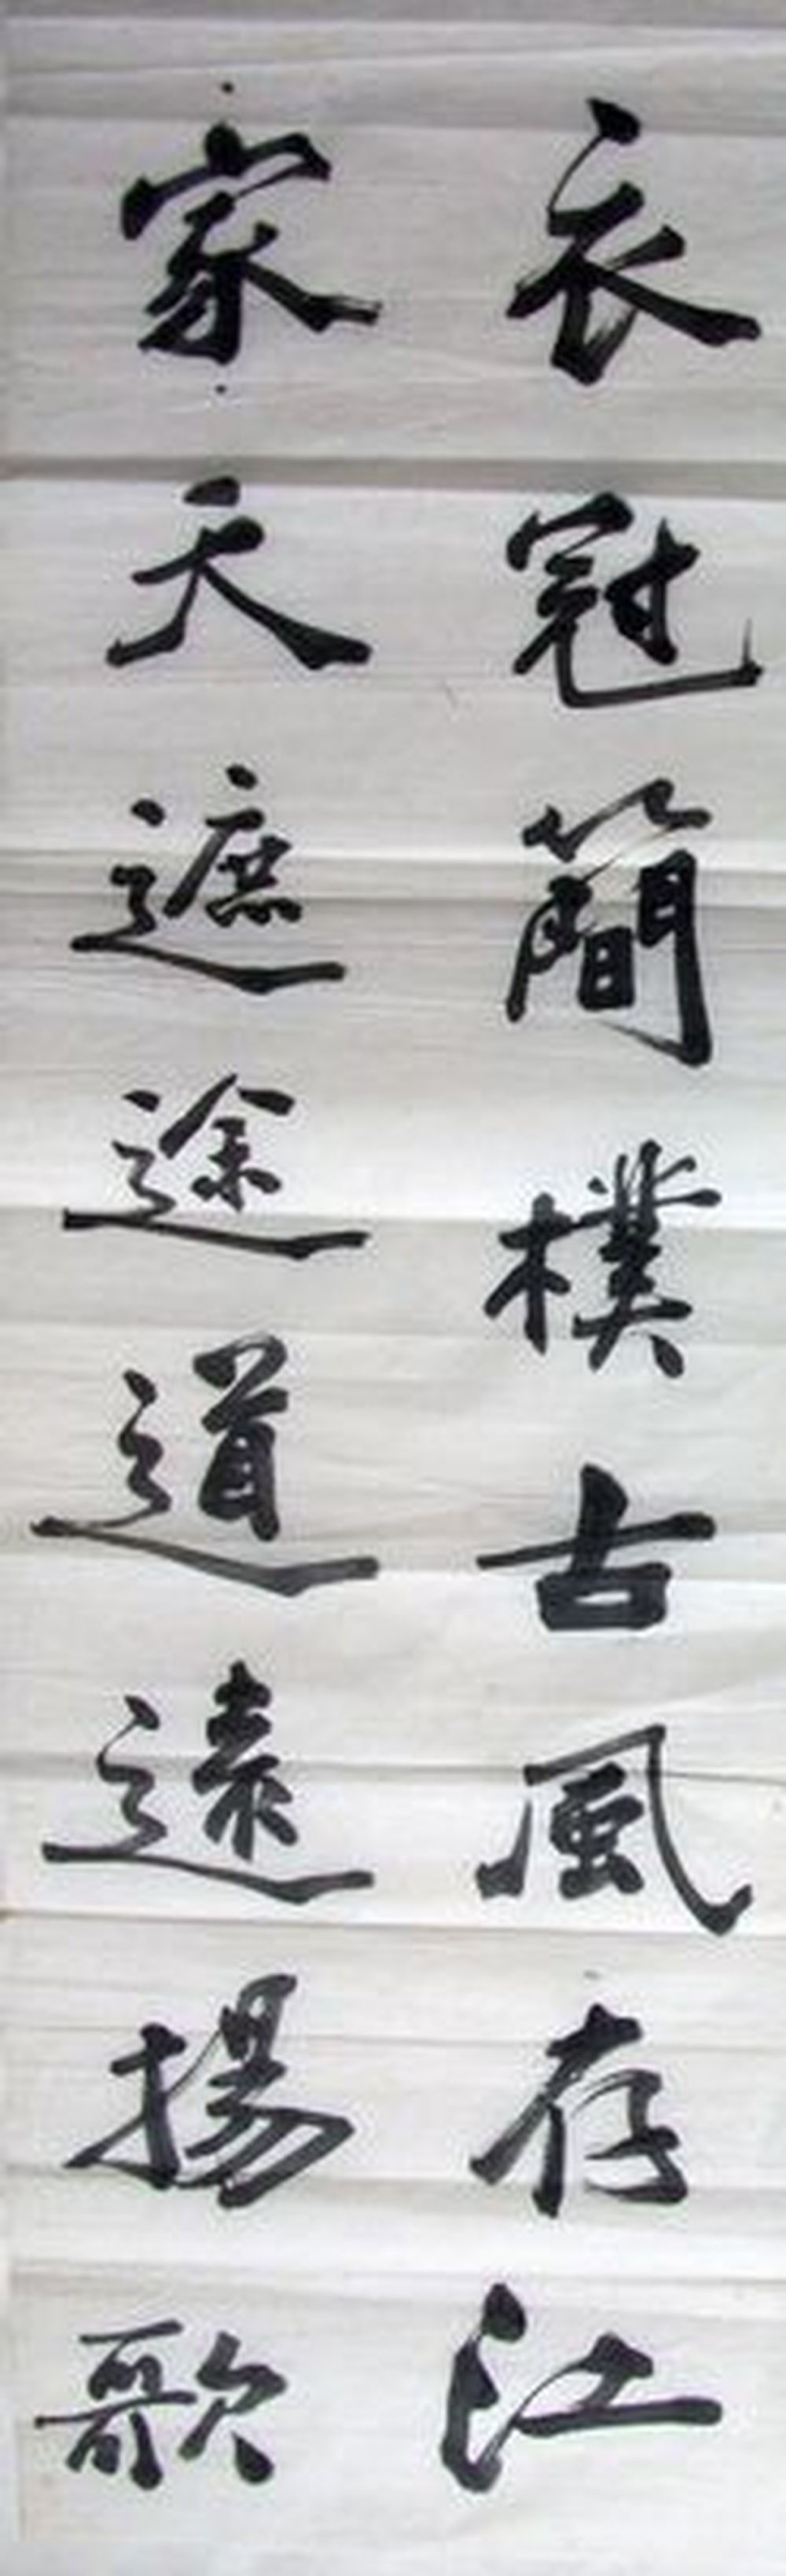 衣冠簡樸古風存江
家天遮途道遠揚歌